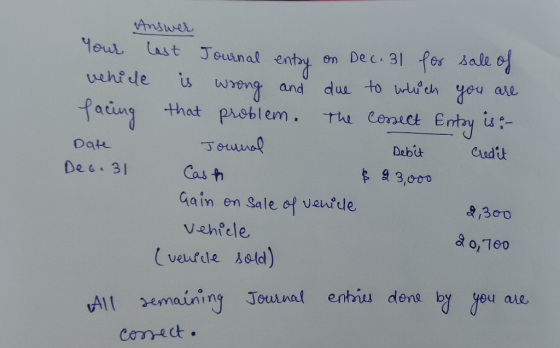 Answer
Your last Journal entry on Dec. 31 for sale of
vehicle is wrong and due to which you are
facing that problem. The Correct Entry is :-
Date Journal Debit Credit
Dec. 31 Cash $ 23,000
Gain on sale of vehicle 2,300
Vehicle 20,700
(vehicle sold)
All remaining Journal entries done by you are
correct.